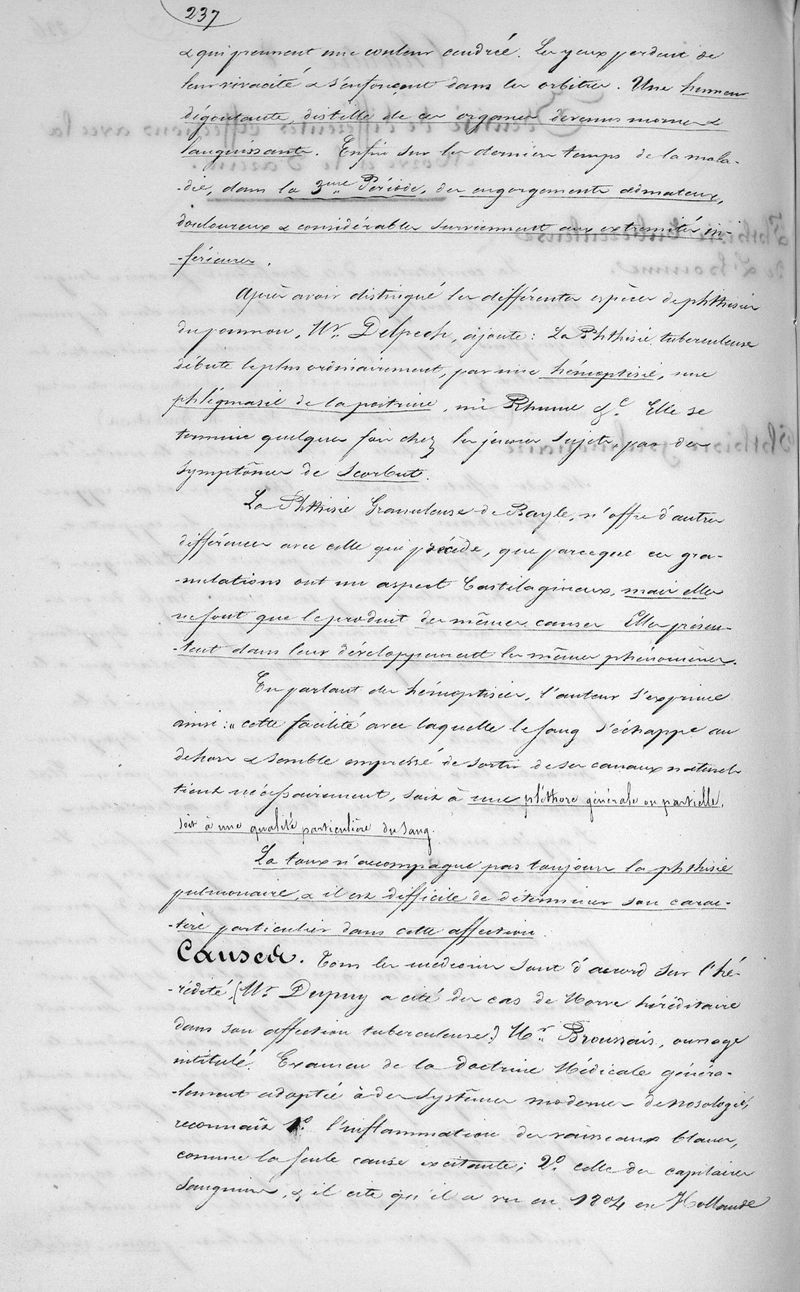 237
& qui prennent une couleur cendrée. Les yeux perdent de
leur vivacité & s'enfonçent dans les orbites. Une humeur
dégoutante, distille de ces organes devenus mornes &
languissants. Enfin sur les derniers temps de la mala-
-die, dans la 3me Période, des engorgements œdmateux,
douloureux & considérables surviennent aux extremités in-
-férieures.
Après avoir distingué les différentes espèces de phthisies
du poumon, Mr. Delpech, ajoute: La Phthisie tuberculeuse
débute le plus ordinairement, par une hémoptisie, une
phlégmasie de la poitrine, un Rhume &c. Elle se
termine quelques fois chez les jeunes sujets par des
symptômes de scorbut.
La Phthisie Granuleuse de Bayle, n'offre d'autres
différences avec celle qui précède, que parceque ces gra-
-nulations ont un aspect Cartilagineux, mais elles
ne sont que le produit des mêmes causes Elles présen-
-tent dans leur développement les mêmes phénomènes.
En parlant des hémoptisies, l'auteur s'exprime
ainsi: „ cette facilité avec laquelle le sang s'échappe au
dehors & semble empressé de sortir de ses canaux naturels
tient nécessairement, soit à une pléthore générale ou partielle,
soit à une qualité particulière du sang.
La toux n'accompagne pas toujours la phthisie
pulmonaire, & il est difficile de déterminer son carac-
-tère particulier dans cette affection
Causes. Tous les médecins sont d'accord sur l'hé-
-rédité. (Mr. Dupuy a cité des cas de Morve héréditaire
dans son affection tuberculeuse.) Mr. Broussais, ouvrage
intitulé. Examen de la doctrine Médicale généra-
-lement adoptée & des systèmes modernes de nosologie,
reconnaît 1º. l'inflammation des vaisseaux blancs,
comme la seule cause excitante; 2º celle des capilaires
sanguins, & il cite qu'il a vu en 1804 en Hollande